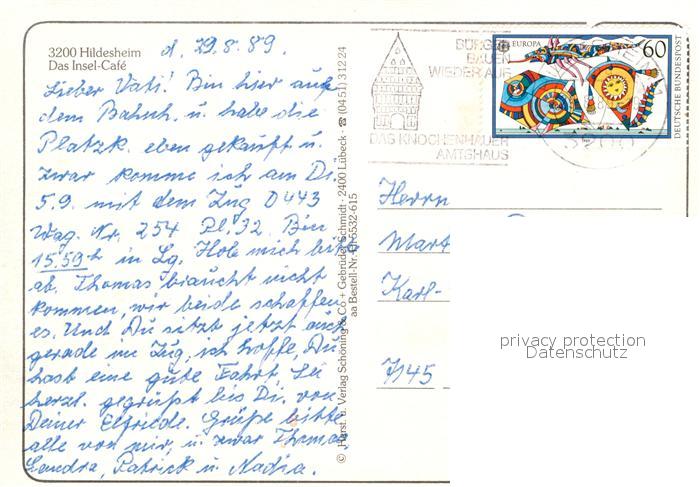 3200 Hildesheim
Das Insel-Café
d. 29.8.89.
Lieber Vati! Bin hier auf
dem Bahnh. u. habe die
Platzk. eben gekauft u.
zwar komme ich am Di.
5.9. mit dem Zug D 443
Wag. Nr. 254 Pl. 32. Bin
15.59 h in Lg. Hole mich bitte
ab. Thomas braucht nicht
kommen, wir beide schaffen
es. Und Du sitzt jetzt auch
gerade im Zug, ich hoffe, Du
hast eine gute Fahrt. Sei
herzl. gegrüßt bis Di. von
Deiner Elfriede. Grüße bitte
alle von mir, u. zwar Thomas
Sandra, Patrick u. Nadia.
© Horst. u. Verlag Schöning & Co + Gebrüder Schmidt · 2400 Lübeck · ☎ (0451) 3 12 24
aa Bestell-Nr. Hi 5532-615
BÜRGER
BAUEN
WIEDER AUF
DAS KNOCHENHAUER
AMTSHAUS
EUROPA
60
DEUTSCHE BUNDESPOST
3200
Herrn
Mart
Karl-
7145
privacy protection
Datenschutz